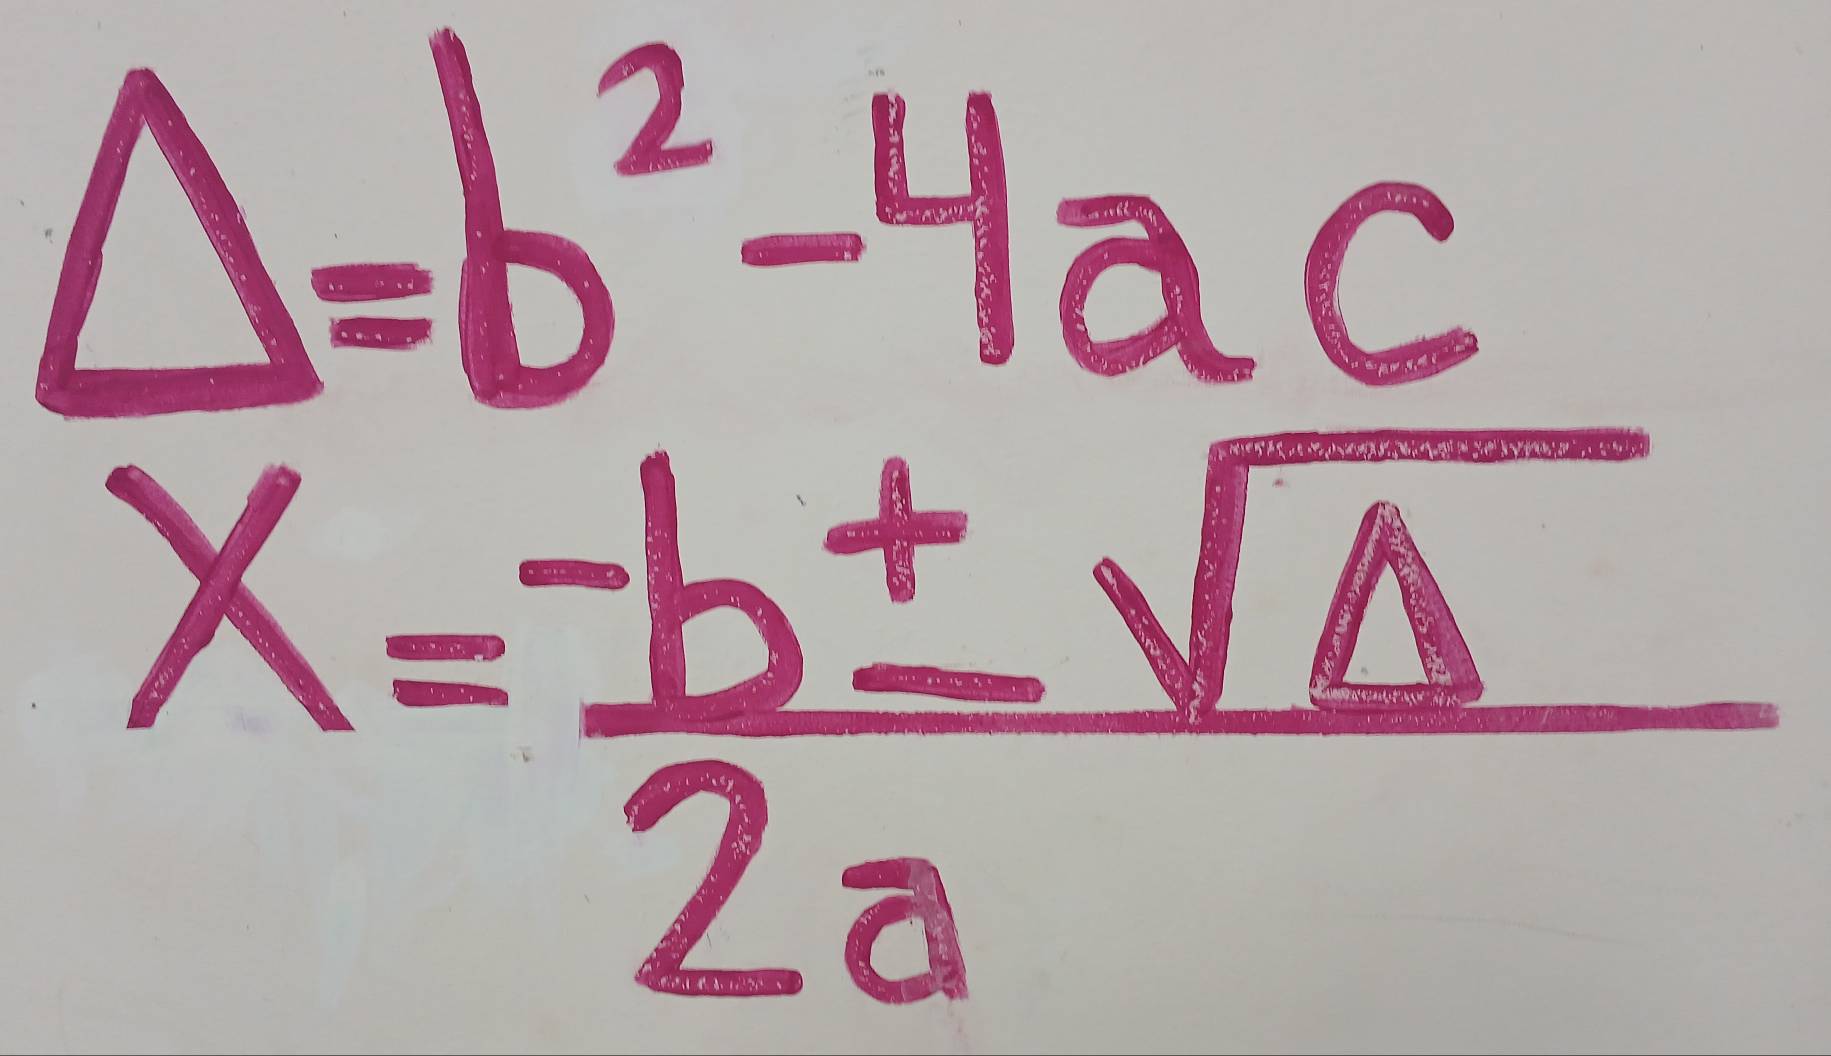 Δ=b²-4ac
X=-b±√Δ
2a